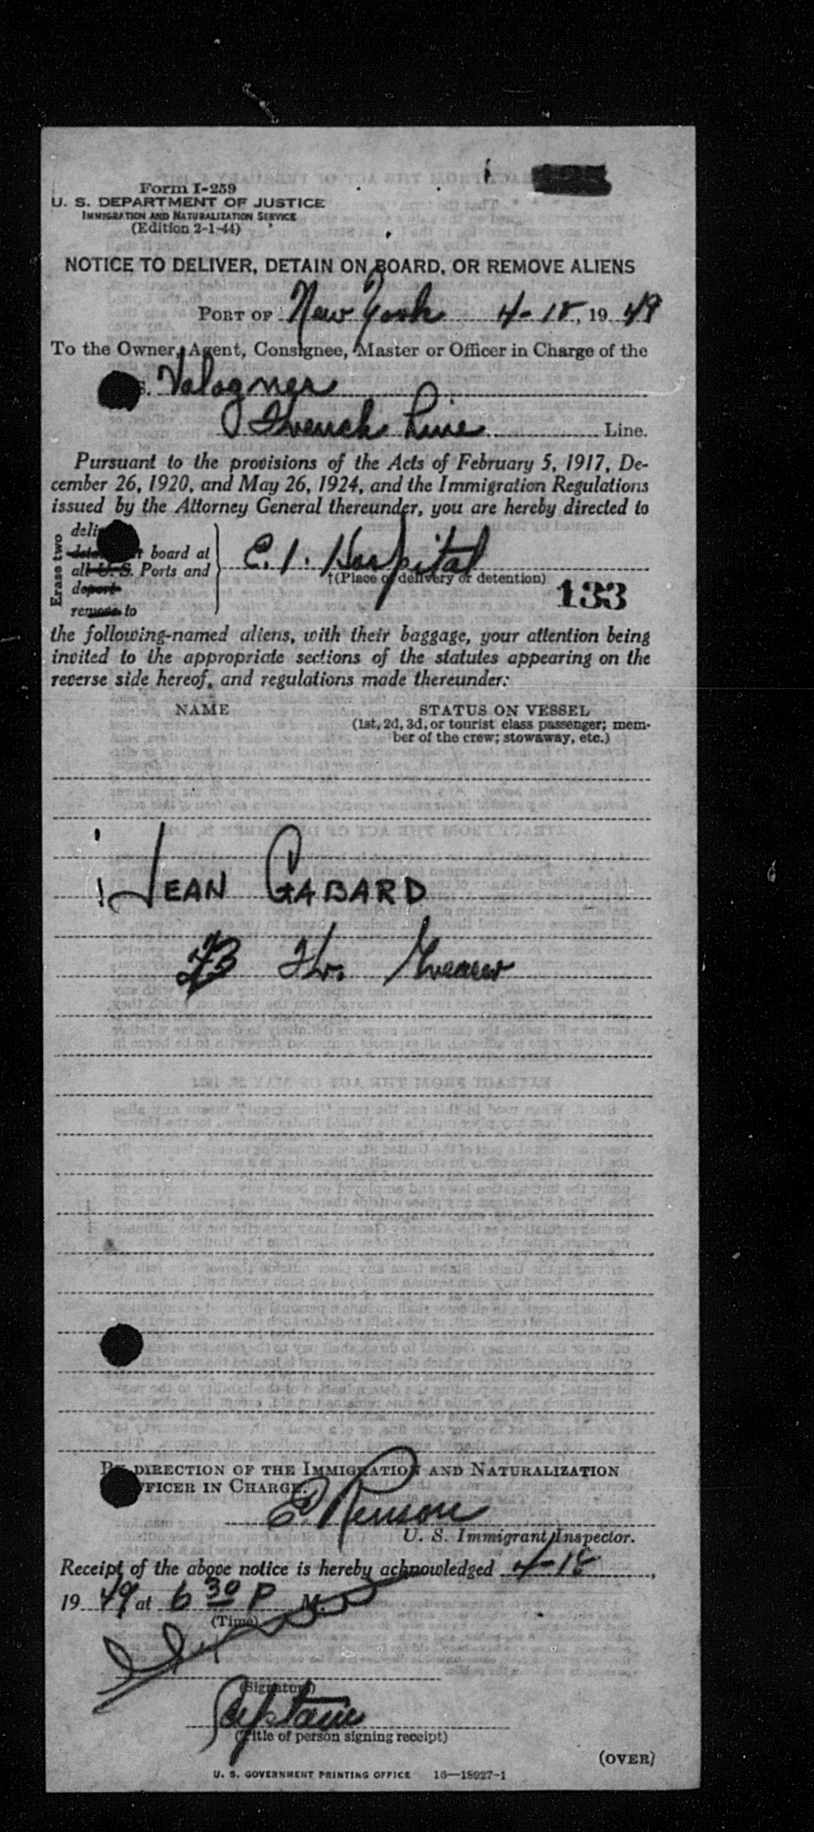 Form I-259
U. S. DEPARTMENT OF JUSTICE
IMMIGRATION AND NATURALIZATION SERVICE
(Edition 2-1-44)
NOTICE TO DELIVER, DETAIN ON BOARD, OR REMOVE ALIENS
PORT OF New York 4-18, 19 49
To the Owner, Agent, Consignee, Master or Officer in Charge of the
S. Valognes
French Line Line.
Pursuant to the provisions of the Acts of February 5, 1917, De-
cember 26, 1920, and May 26, 1924, and the Immigration Regulations
issued by the Attorney General thereunder, you are hereby directed to
Erase two
board at
all U. S. Ports and
deport
remove to
E. I. Hospital
†(Place of delivery or detention)
133
the following-named aliens, with their baggage, your attention being
invited to the appropriate sections of the statutes appearing on the
reverse side hereof, and regulations made thereunder:
NAME STATUS ON VESSEL
(1st, 2d, 3d, or tourist class passenger; mem-
ber of the crew; stowaway, etc.)
JEAN GABARD
23 Fr.
BY DIRECTION OF THE IMMIGRATION AND NATURALIZATION
OFFICER IN CHARGE.
U. S. Immigrant Inspector.
Receipt of the above notice is hereby acknowledged 4-18,
19 49 at 6 30 P M.
(Time)
(Signature)
Captain
(Title of person signing receipt)
(OVER)
U. S. GOVERNMENT PRINTING OFFICE 16—18927-1